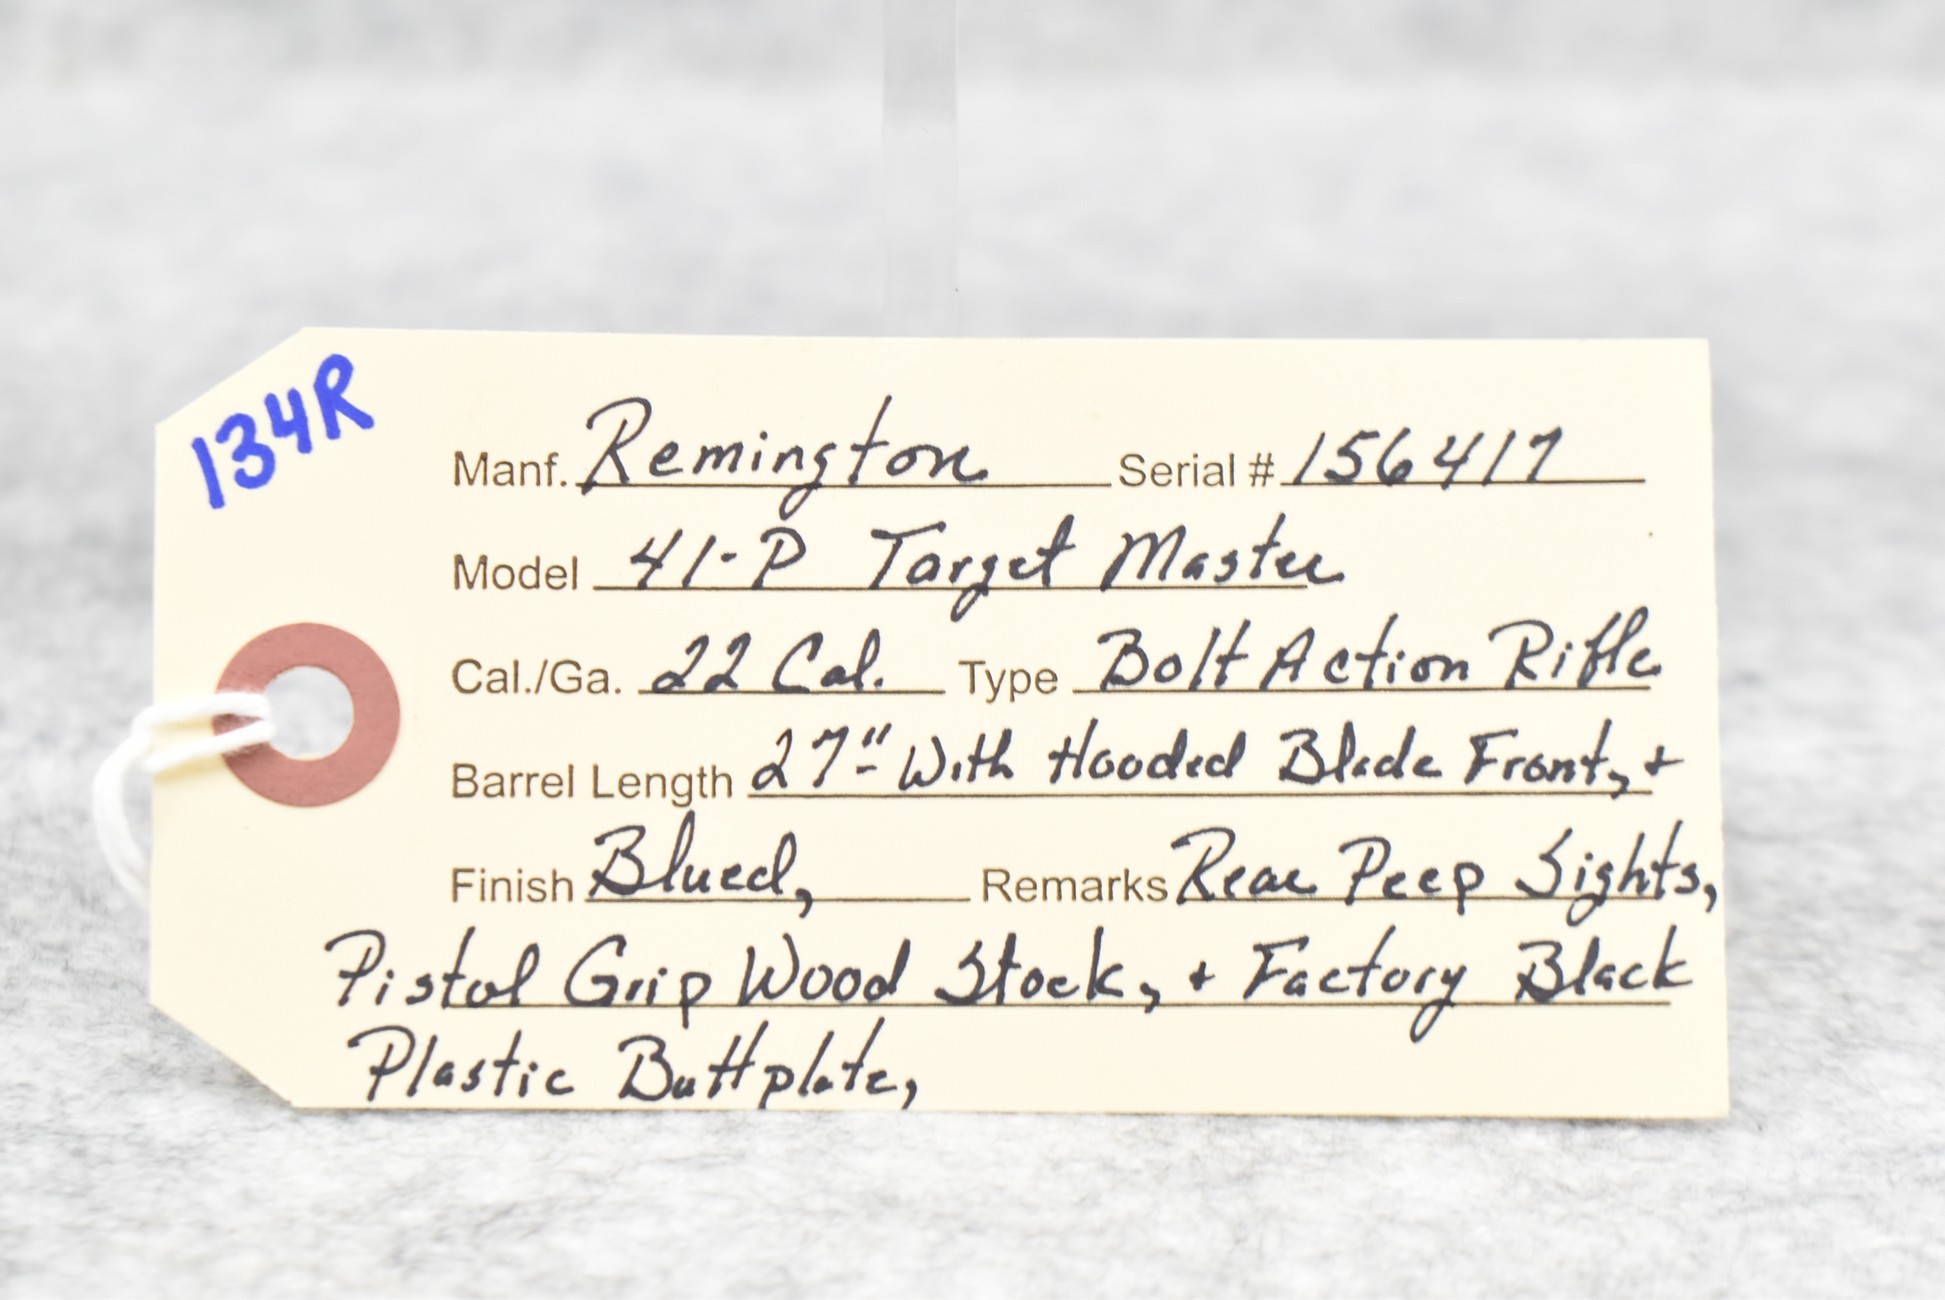 134R
Manf. Remington Serial # 156417
Model 41-P Target Master
Cal./Ga. 22 Cal. Type Bolt Action Rifle
Barrel Length 27" With Hooded Blade Front, +
Finish Blued, Remarks Rear Peep Sights,
Pistol Grip Wood Stock, + Factory Black
Plastic Buttplate,